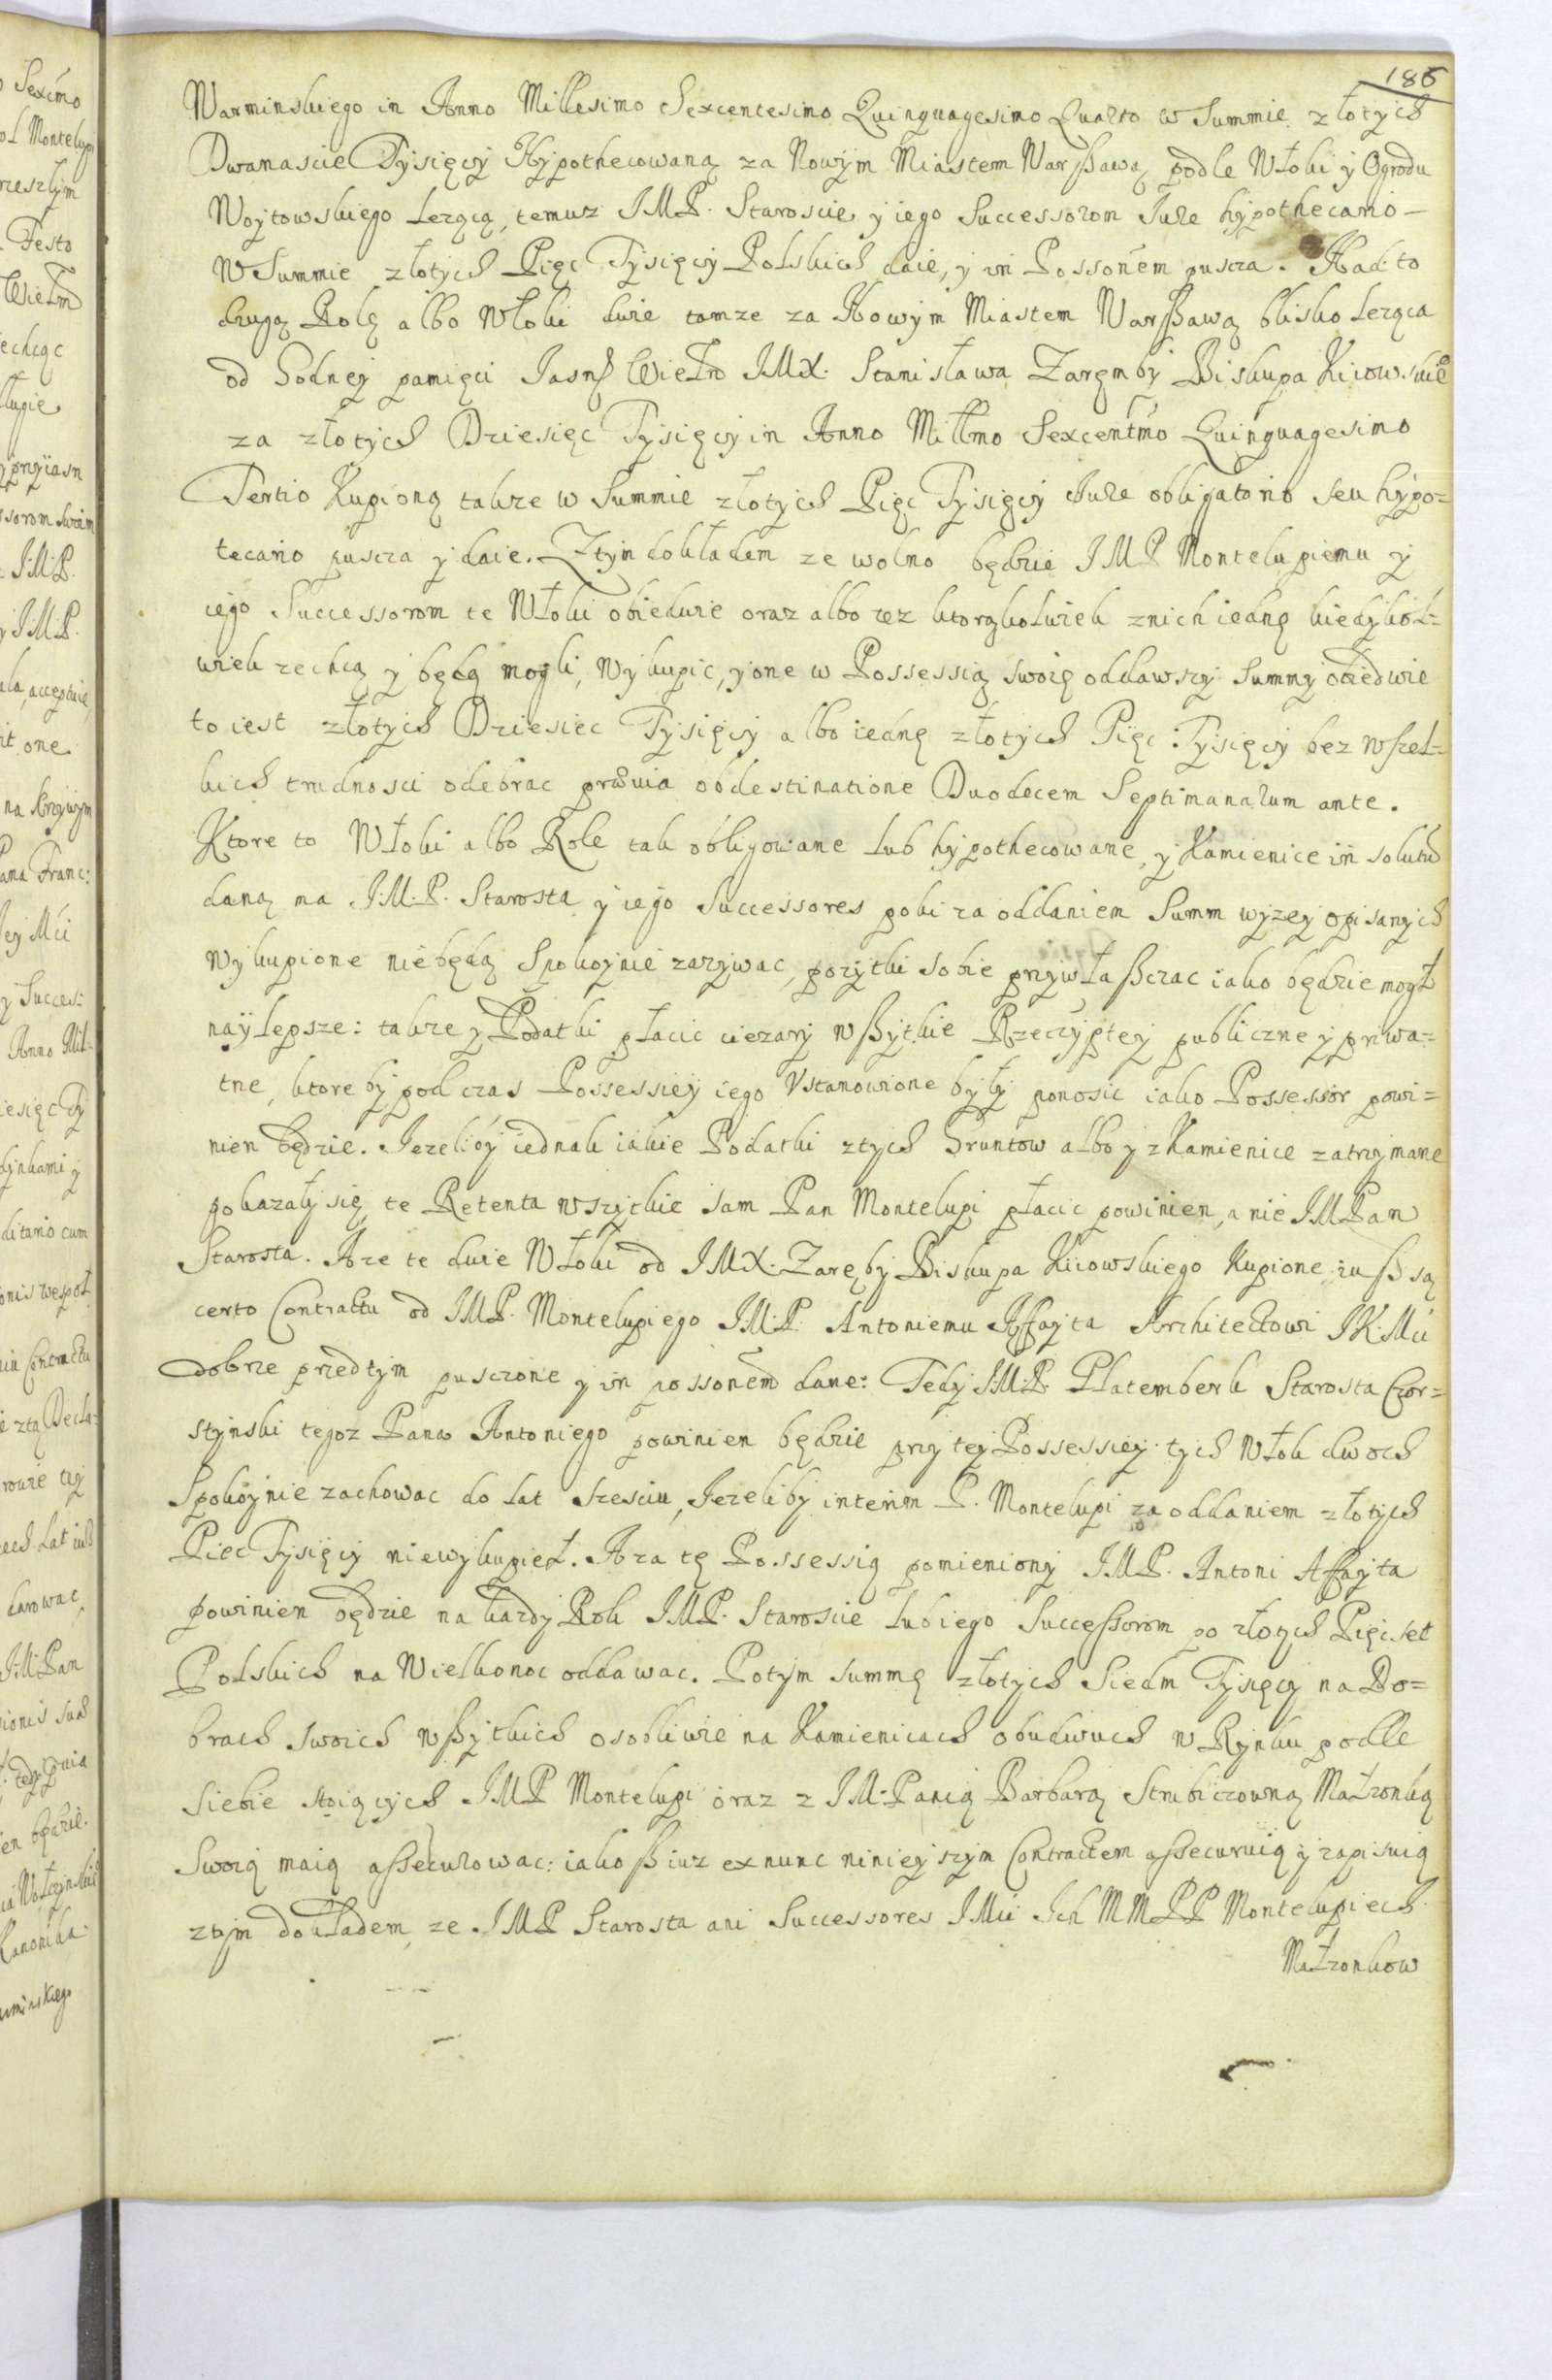 186
Warminskiego in Anno Millesimo Sexcentesimo Quinquagesimo Quarto w Summie złotych
Dwanascie Tysięcy Hypothecowaną za Nowym Miastem Warßawą podle Włoki y Ogrodu
Woytowskiego Lezącą, temuz IMP. Staroscie y iego Successorom Jure hypothecario –
W Summie złotych Pięc Tysięcy Polskich daie, y in Possonem puscza. Nad to
drugą Rolę albo Włoki dwie tamze za Nowym Miastem Warßawą blisko Lezącą
od Godney pamięci Jasn Wielm IMX. Stanisława Zaręmby Biskupa Kiiowskie
za złotych Dziesięc Tysięcy in Anno Millmo Sexcentmo Quinquagesimo
Tertio Kupioną takze w Summie złotych Pięc Tysięcy Jure obligatorio seu hypo=
tecario puscza y daie. Ztym dokładem ze wolno będzie IMP Montelupiemu y
iego Successorom te Włoki obiedwie oraz albo tez ktorąkolwiek znich iednę kiedykol=
wiek zechcą y będą mogli, Wykupic, y one w Possessią swoię oddawszy Summy obiedwie
to iest złotych Dziesięc Tysięcy albo iednę złotych Pięc Tysięcy bez wszel=
kich trudnosci odebrac prævia obdestinatione Duodecem Septimanarum ante.
Ktore to Włoki albo Role tak obligowane lub hypothecowane, y Kamienice in solutu
daną ma I.M.P. Starosta y iego Successores poki za oddaniem Summ wyzey opisanych
Wykupione niebędą Spokoynie zazywac, pozytki sobie przywłaßczac iako będzie mogł
naylepsze: takze y Podatki płacic ciezary wßytkie Rzeczyptey publiczne y priwa=
tne, ktore by pod czas Possessiey iego Vstanowione były ponosic iako Possessor powi=
nien będzie. Jezeliby iednak iakie Podatki ztych Gruntow albo y z Kamienice zatrzymane
pokazały się te Retenta wszytkie sam Pan Montelupi płacic powinien, a nie IMPan
Starosta. A ze te dwie Włoki od IMX. Zaręby Biskupa Kiiowskiego Kupione iuß są
certo Contractu od IMP. Montelupiego IM.P. Antoniemu Affayta Architectowi IK.Mci
dobrze przedtym pusczone y in possonem dane: Tedy IM.P. Platemberk Starosta Czor=
stynski tegoz Pana Antoniego powinien będzie przy tey Possessiey tych Włok dwoch
Spokoynie zachowac do Lat szesciu, Jezeliby interim P. Montelupi za oddaniem złotych
Pięc Tysięcy niewykupieł. A za tę Possessią pomieniony IMP. Antoni Affayta
powinien będzie na kazdy Rok IMP. Staroscie lub iego Successorom po złotych Pięcset
Polskich na Wielkonoc oddawac. Potym summę złotych Siedm Tysięcy na Do=
brach swoich wßytkich osobliwie na Kamienicach obudwuch w Rynku podle
siebie stoiących IMP Montelupi oraz z IM: Panią Barbarą Strubiczowną Małzonką
Swoią maią assecurowac: iakoß iuz ex nunc ninieyszym Contractem assecuruią y zapisuią
ztym dokładem, ze IMP Starosta ani Successores IMci Ich MMPP Montelupiech
Małzonkow